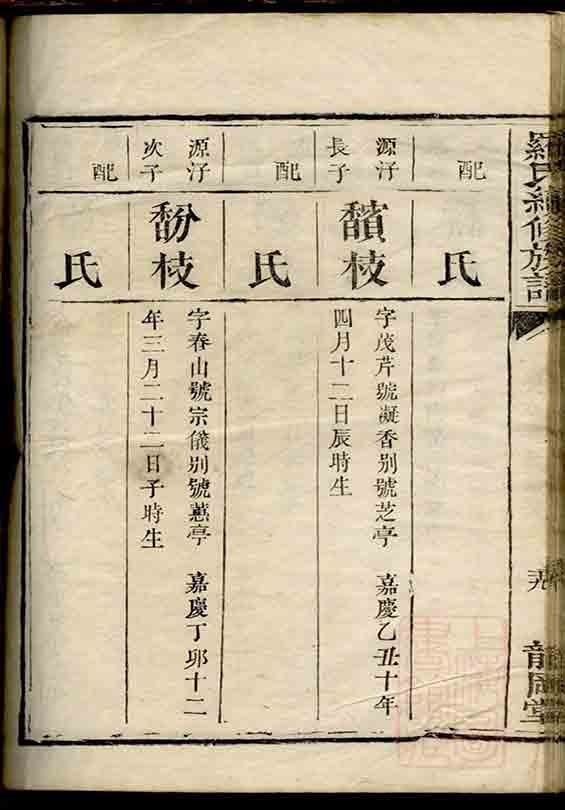 羅氏續修族譜
龍岡堂
配
氏
源汙
長子
馩枝
字茂芹號凝香别號芝亭 嘉慶乙丑十年
四月十二日辰時生
配
氏
源汙
次子
馚枝
字春山號宗儀别號蕙亭 嘉慶丁夘十二
年三月二十二日子時生
配
氏